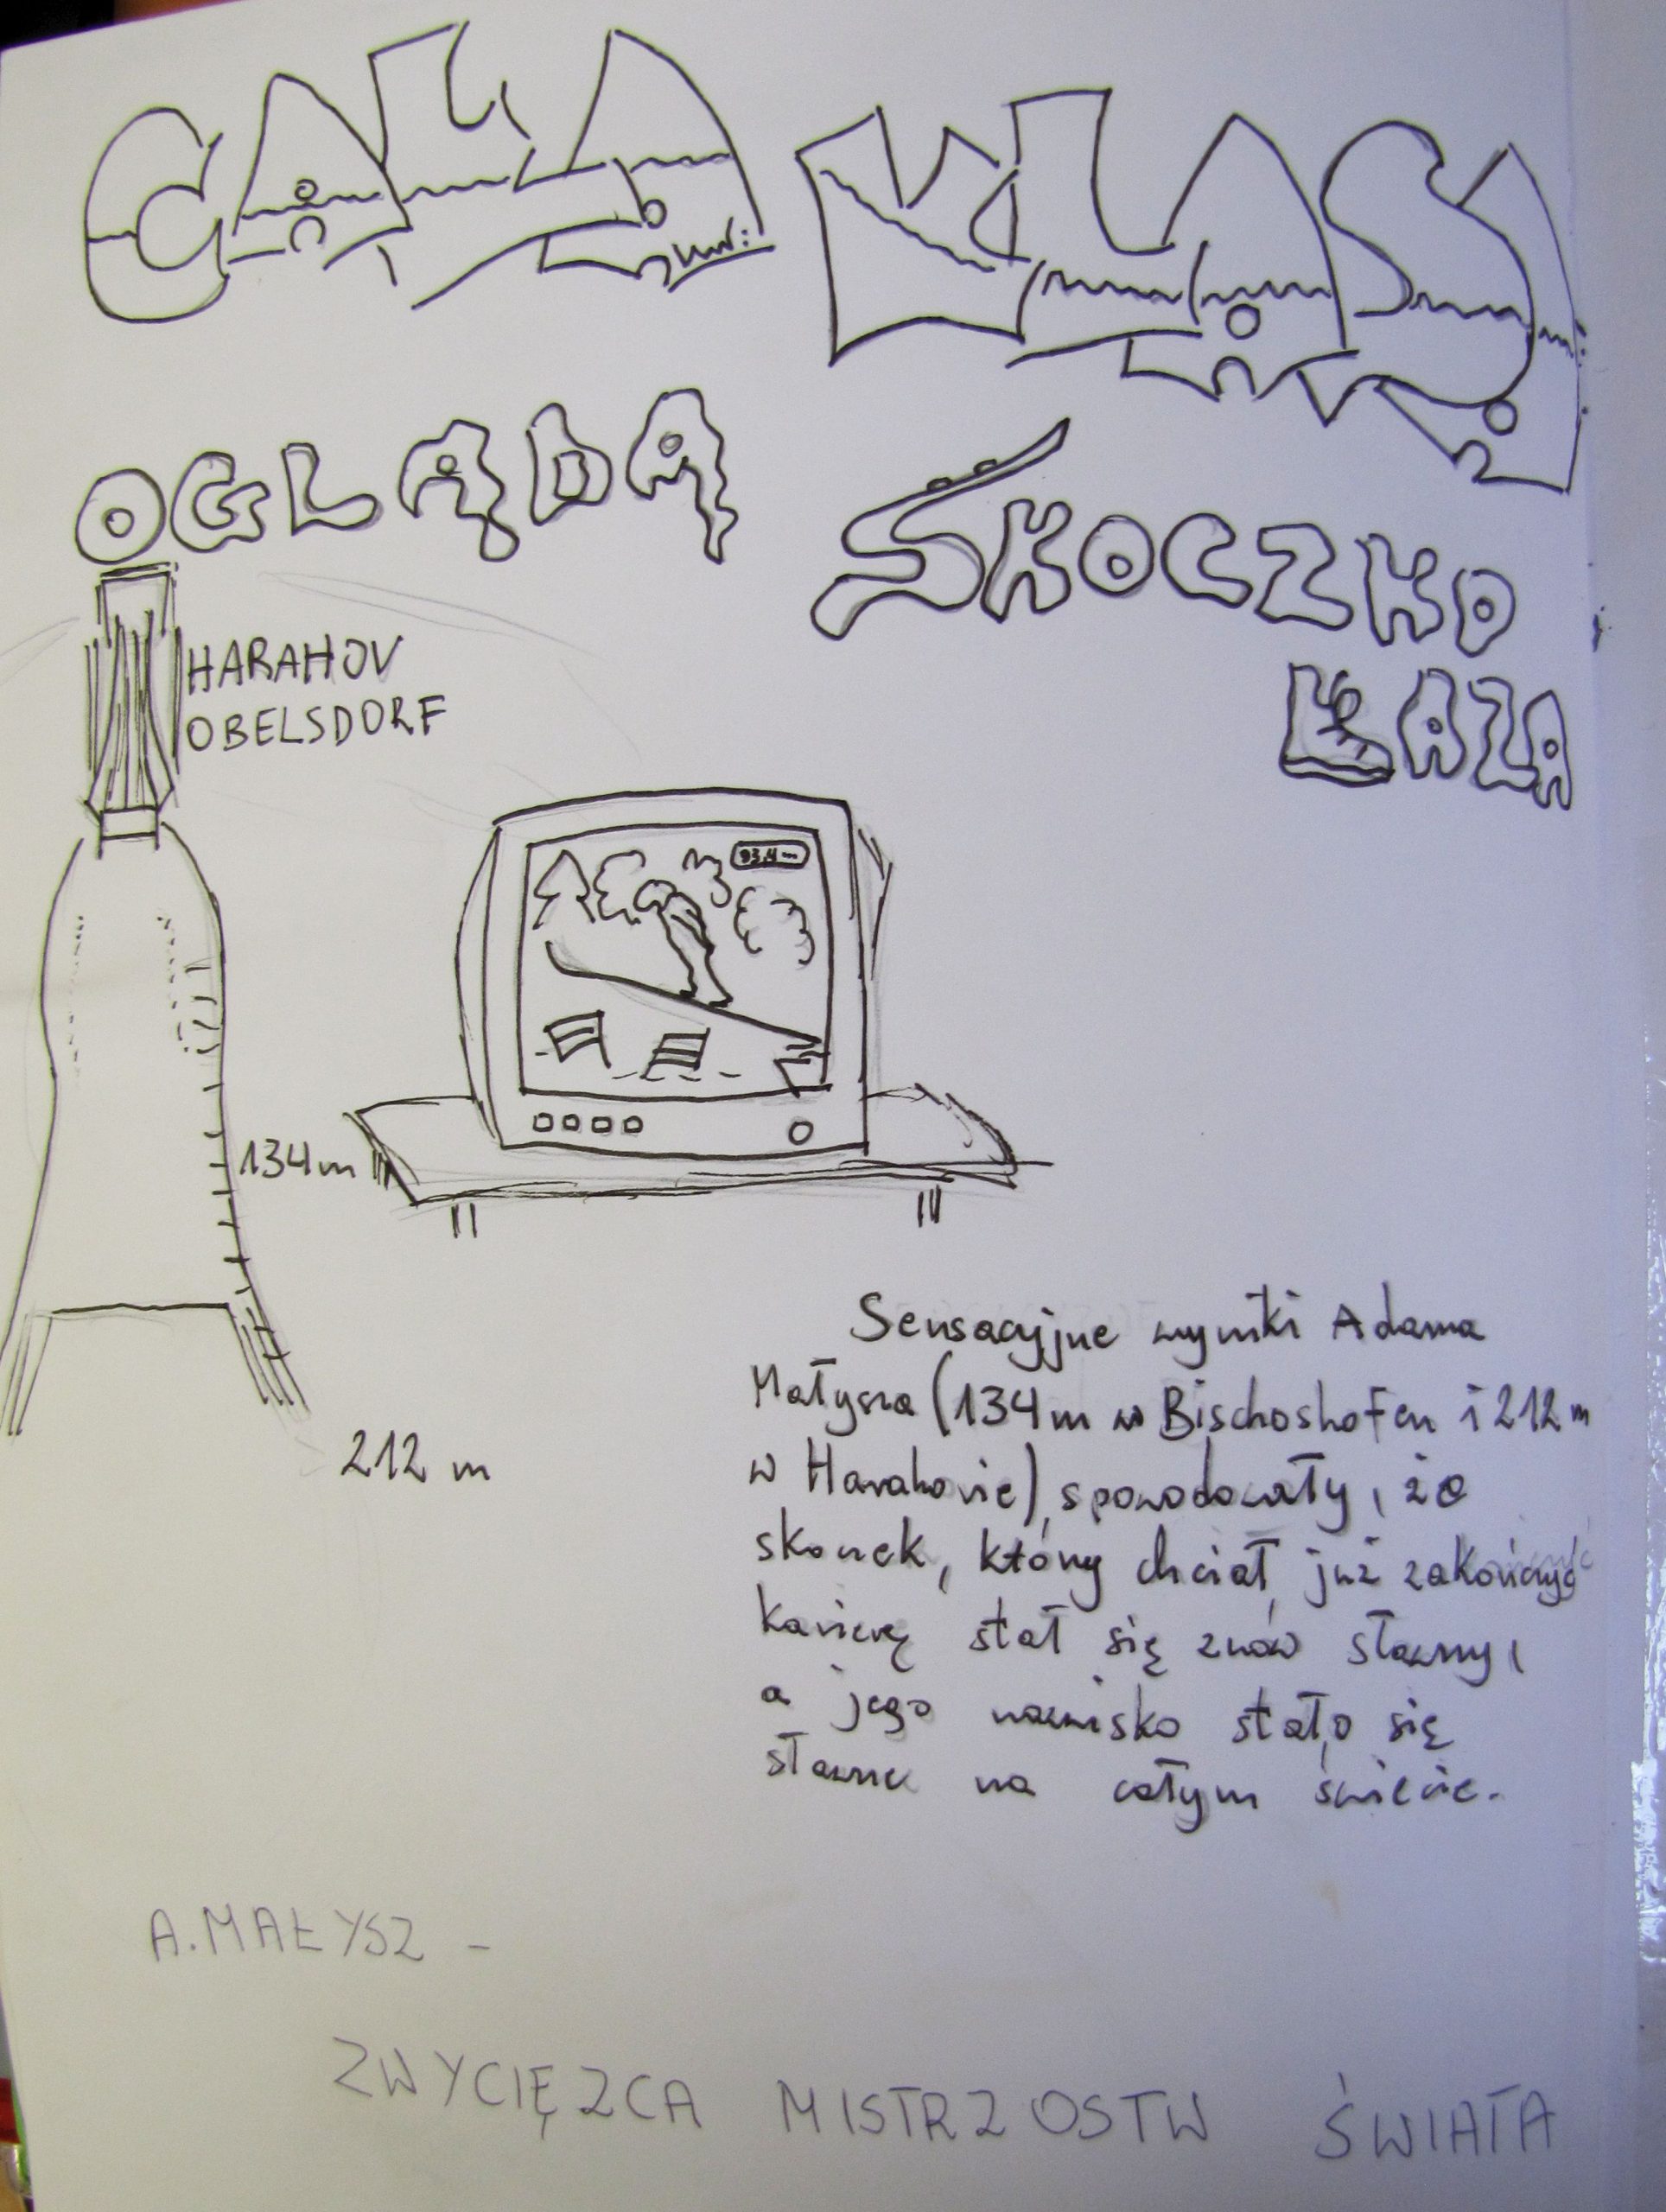 CAŁA KLASA
OGLĄDA SKOCZKO
ŁAZA
HARAHOV
OBELSDORF
93,4 m
134m
212 m
Sensacyjne wyniki Adama
Małysza (134m w Bischoshofen i 212m
w Harahovie), spowodowały, że
skoczek, który chciał już zakończyć
karierę stał się znów sławny,
a jego nazwisko stało się
sławne na całym świecie.
A. MAŁYSZ -
ZWYCIĘZCA MISTRZOSTW ŚWIATA